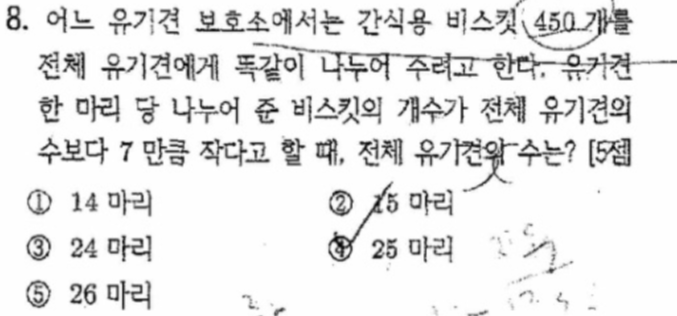 8. 어느 유기견 보호소에서는 간식용 비스킷 450 개를
전체 유기견에게 똑같이 나누어 주려고 한다. 유기견
한 마리 당 나누어 준 비스킷의 개수가 전체 유기견의
수보다 7 만큼 작다고 할 때, 전체 유기견의 수는? [5점]
① 14 마리 ② 15 마리
③ 24 마리 ④ 25 마리
⑤ 26 마리